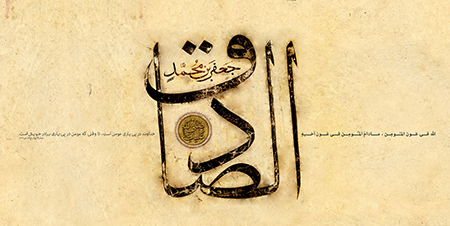 الصادق
جعفر بن محمد
الله في عون المؤمن ، مادام المؤمن في عون أخيه
خداوند در پی یاری مومن است، تا وقتی که مومن در پی یاری برادر خویش است.